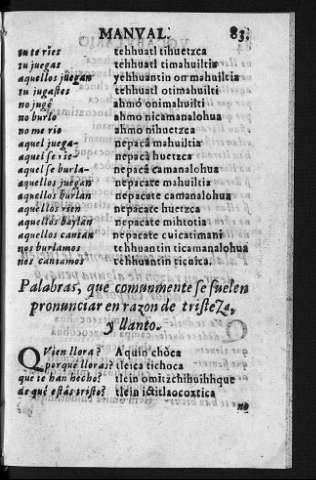 MANVAL. 83.
tu te ries tehhuatl tihuetzca
tu juegas tehhuatl timahuiltia
aquellos juegan yehhuantin on mahuiltia
tu jugastes tehhuatl otimahuilti
no jugè ahmo onimahuilti
no burlo ahmo nicamanalohua
no me rio ahmo nihuetzca
aquel juega- nepacà mahuiltia
aquel se rie nepacà huetzca
aquel se burla- nepacâ camanalohua
aquellos juegan nepacate mahuiltia
aquellos burlan nepacate camanalohua
aquellos rien nepacate huetzca
aquellos baylan nepacate mihtotia
aquellos cantan nepacate cuicatimani
nos burlamos tehhuantin ticamanalohua
nos cantamos tehhuantin ticuica.
Palabras, que comunmente se suelen
pronunciar en razon de tristeza,
y llanto.
QVien llora? Aquin choca
porque lloras? tleica tichoca
que te han hecho? tlein omitzchihuihhque
de què estàs triste? tlein ictitlaocoxtica
no